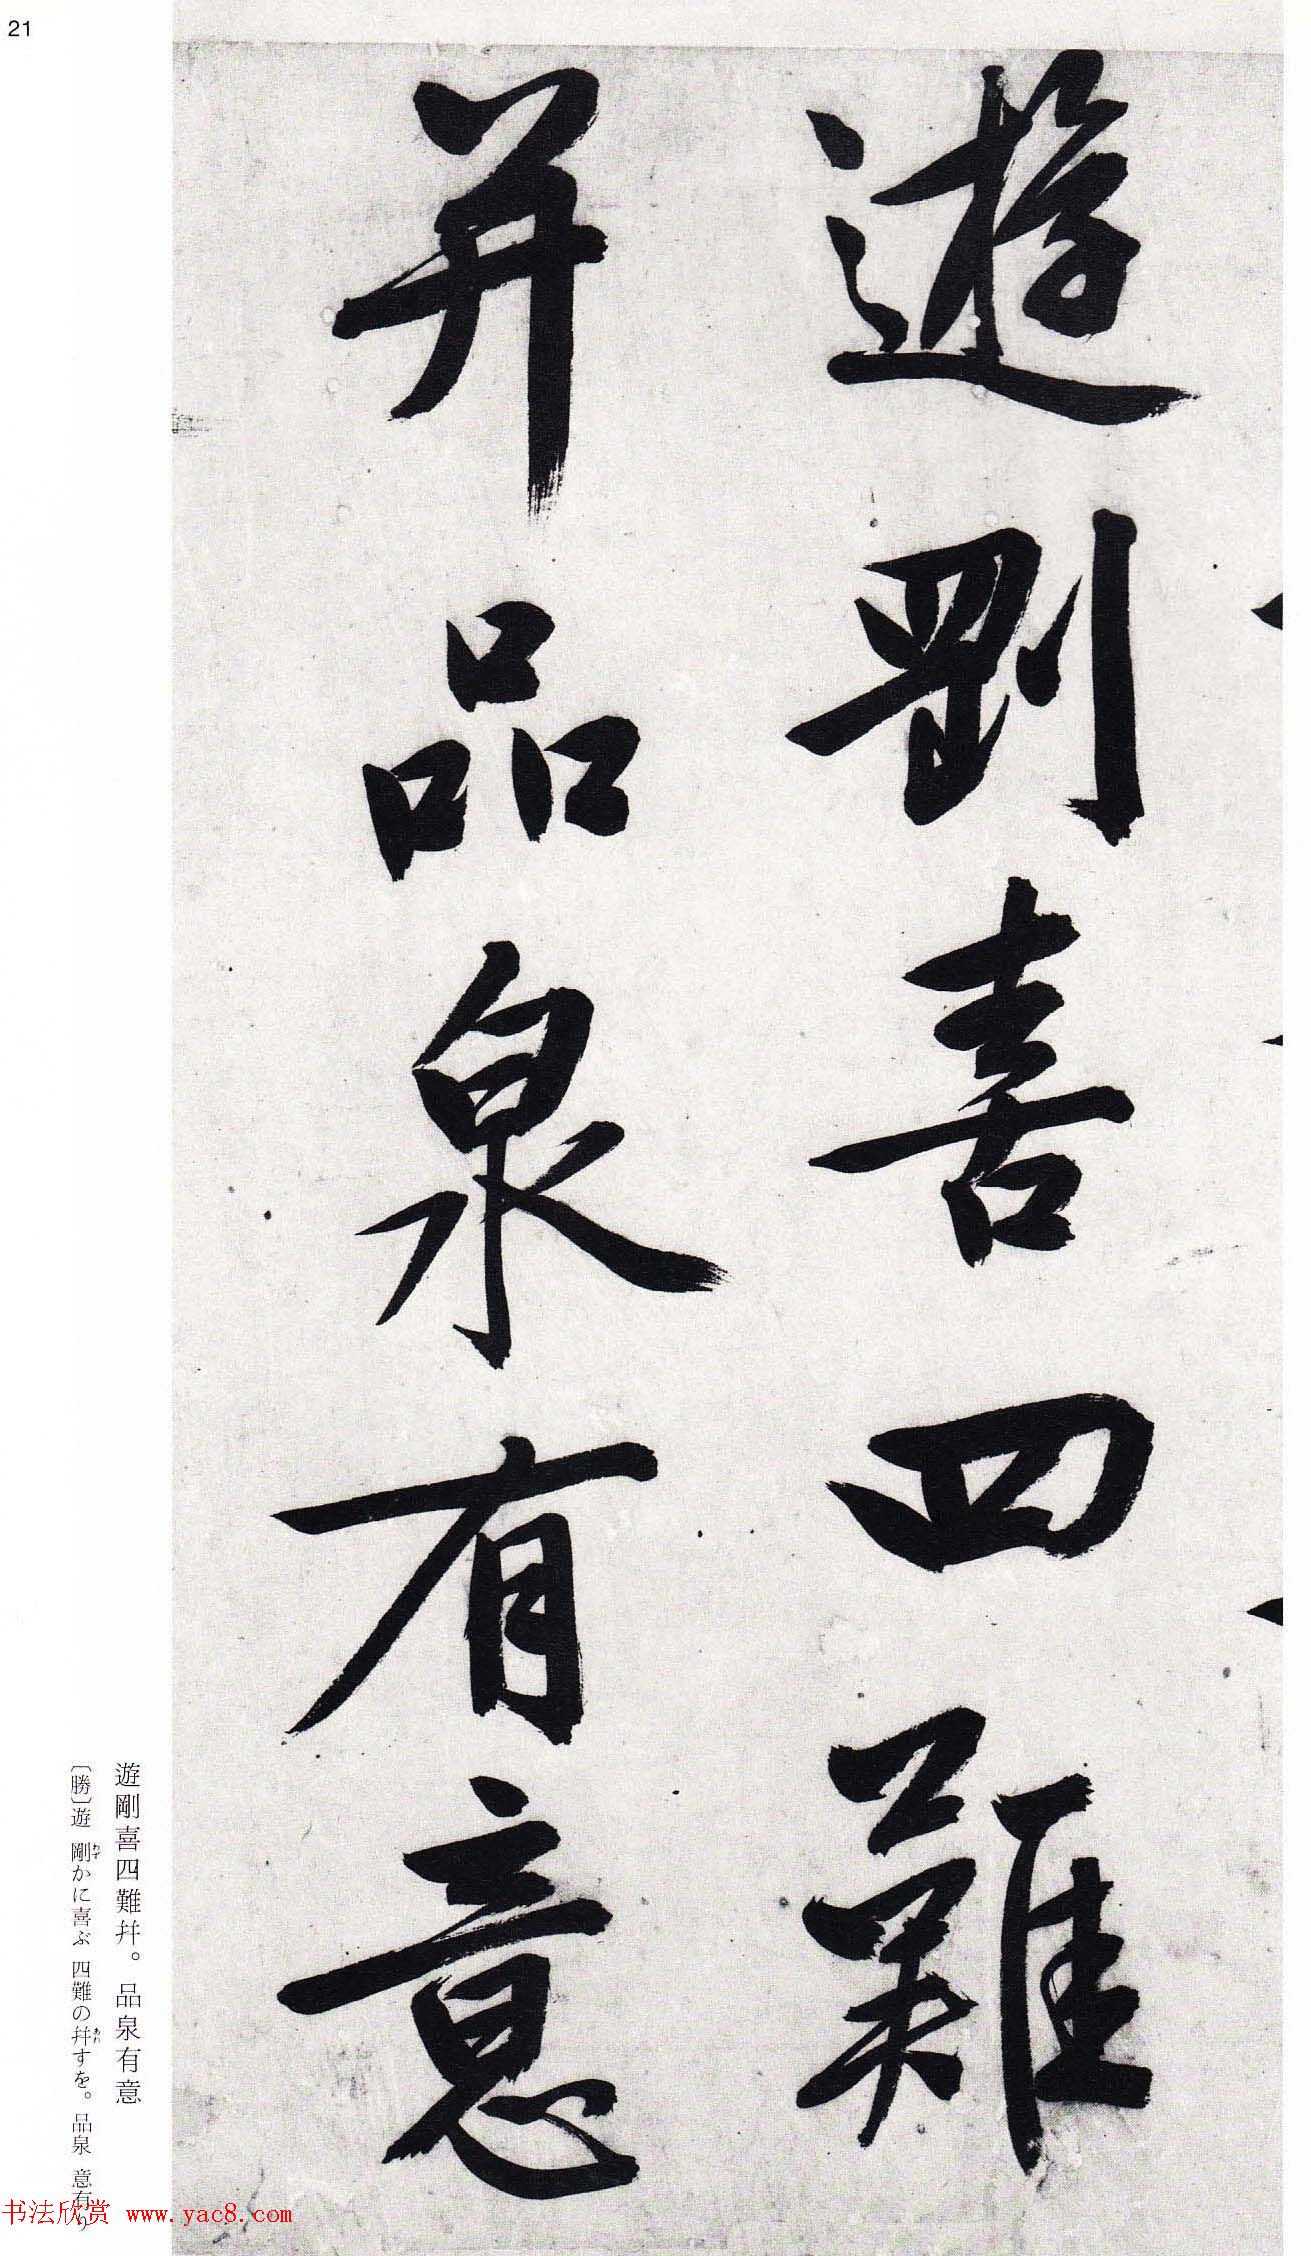 21
遊剛喜四難
并品泉有意
遊剛喜四難幷。品泉有意
〔勝〕遊 剛かに喜ぶ 四難の幷すを。品泉 意有り
わず
あわ
书法欣赏 www.yac8.com